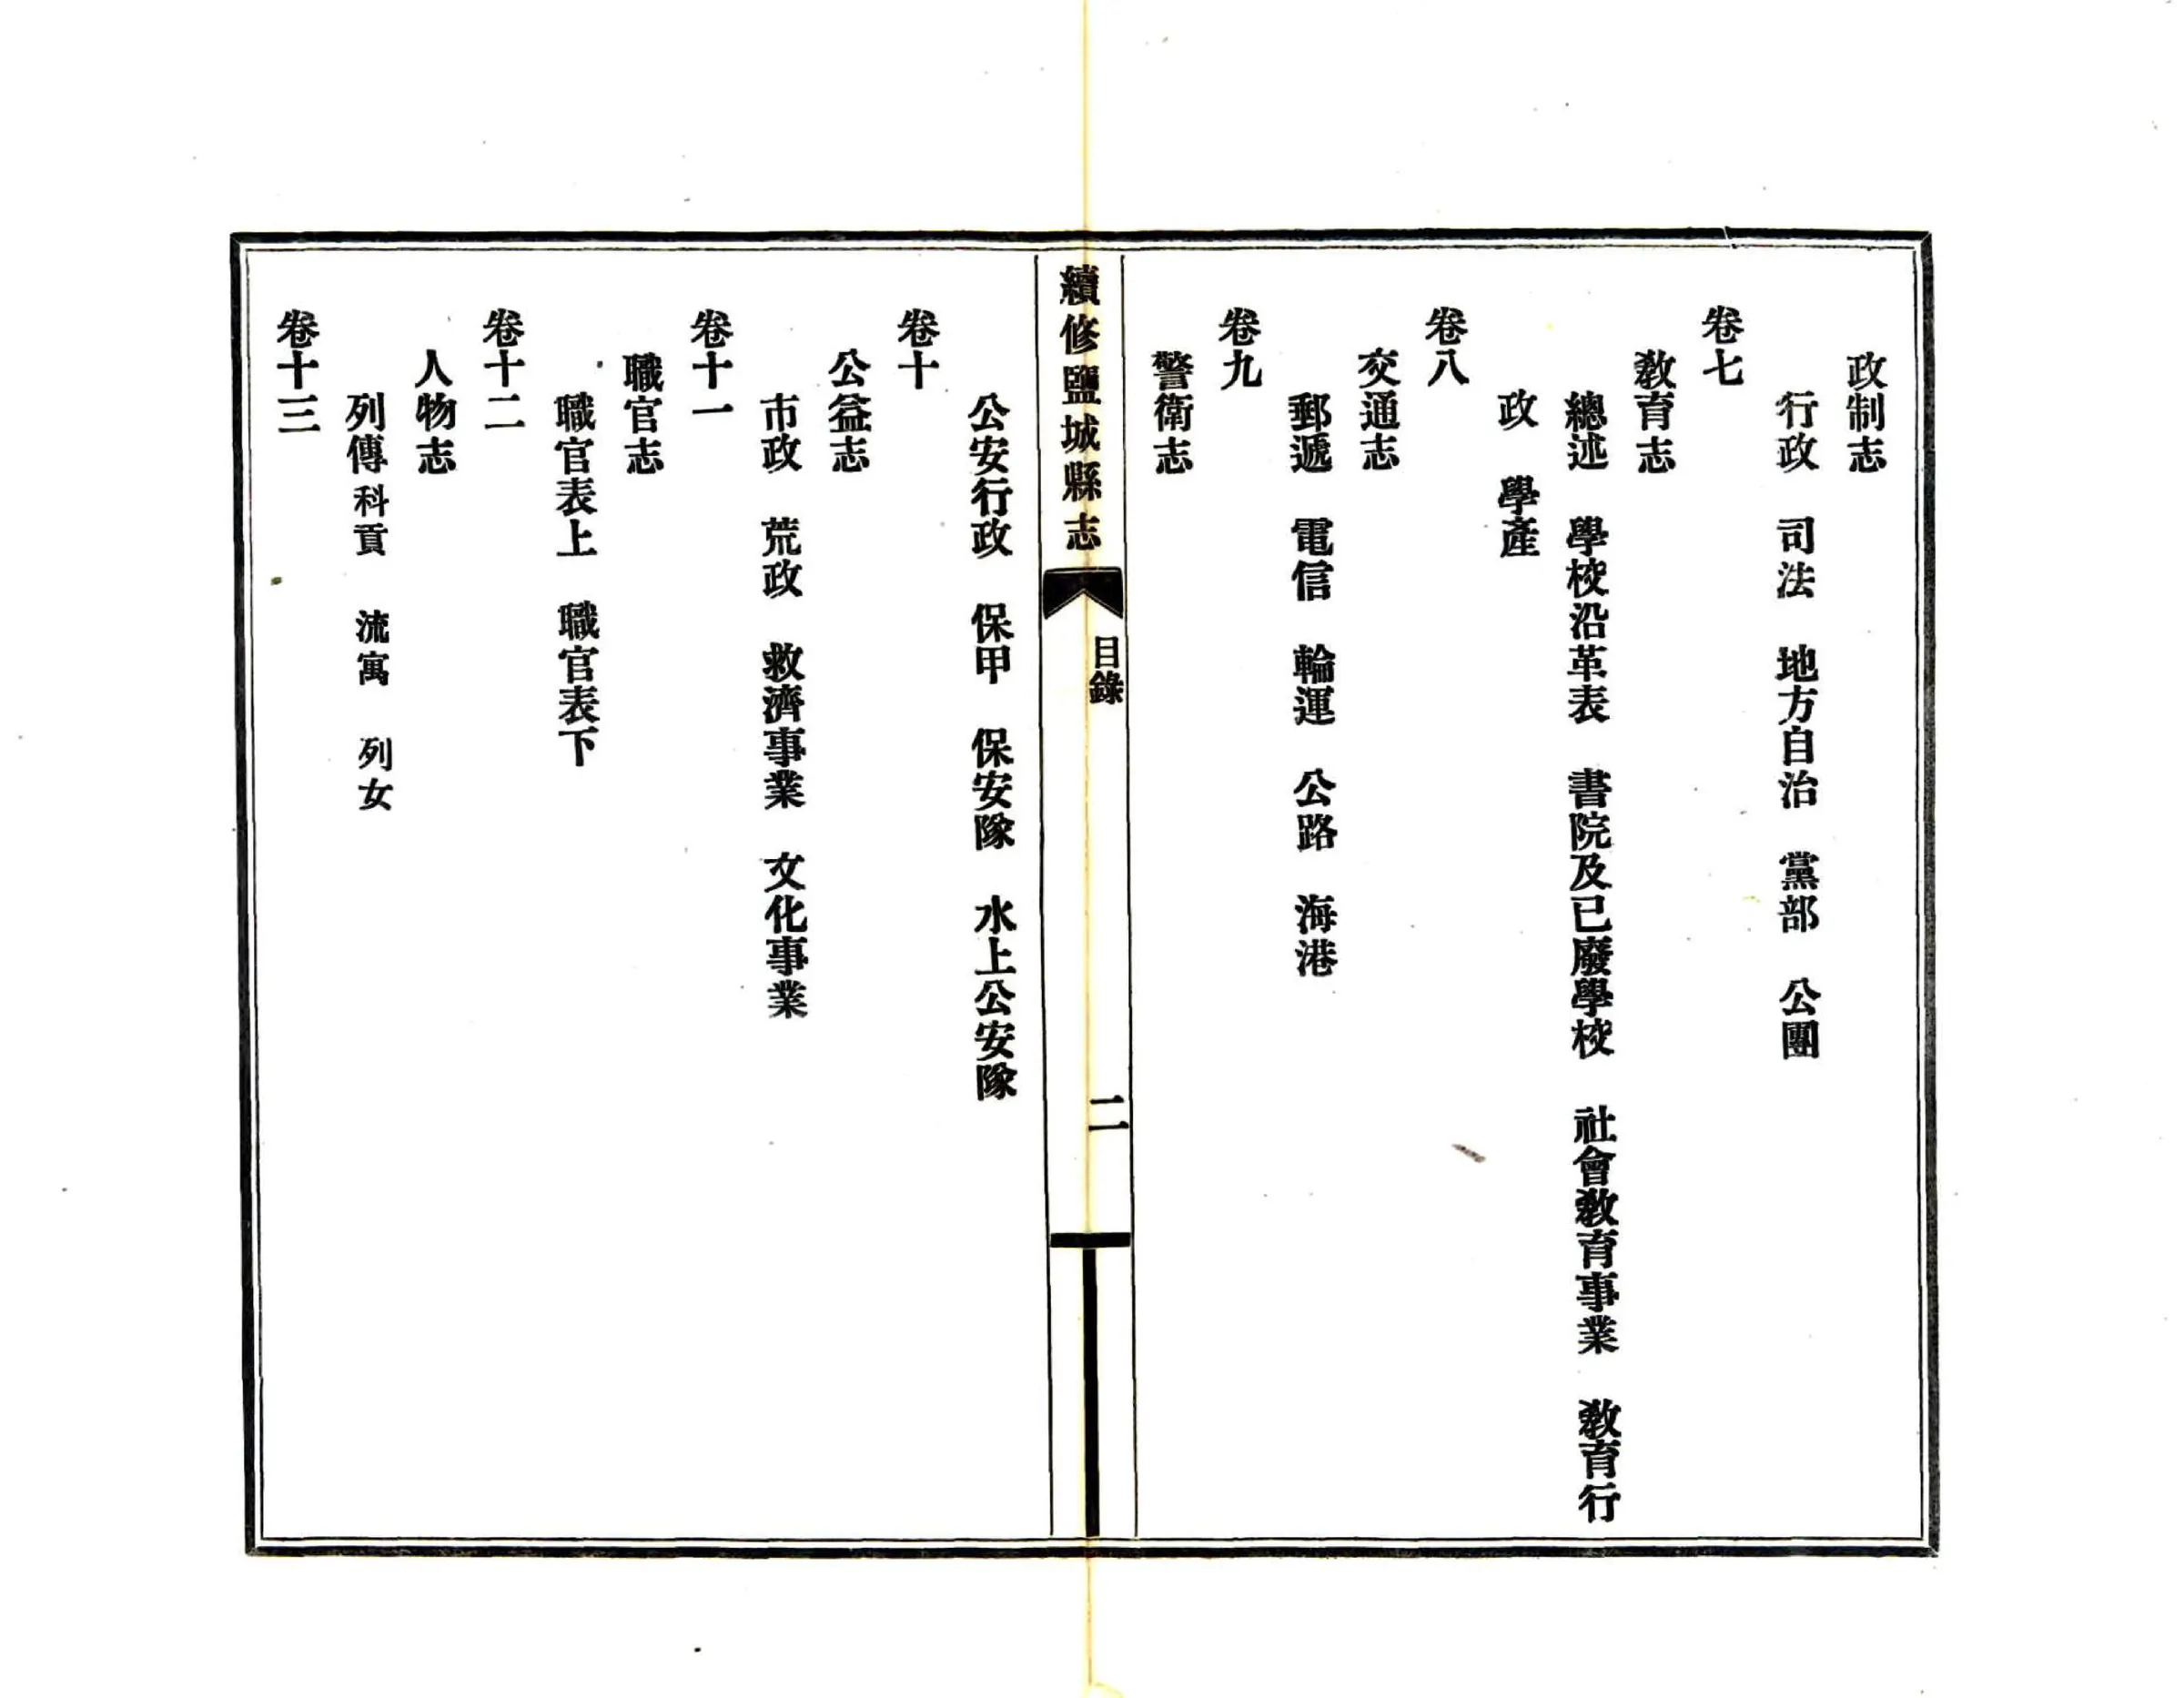 政制志
行政　司法　地方自治　黨部　公團
卷七
敎育志
總述　學校沿革表　書院及已廢學校　社會敎育事業　敎育行
政　學產
卷八
交通志
郵遞　電信　輪運　公路　海港
卷九
警衛志
續修鹽城縣志
目錄
二
公安行政　保甲　保安隊　水上公安隊
卷十
公益志
市政　荒政　救濟事業　文化事業
卷十一
職官志
職官表上　職官表下
卷十二
人物志
列傳　科貢　流寓　列女
卷十三